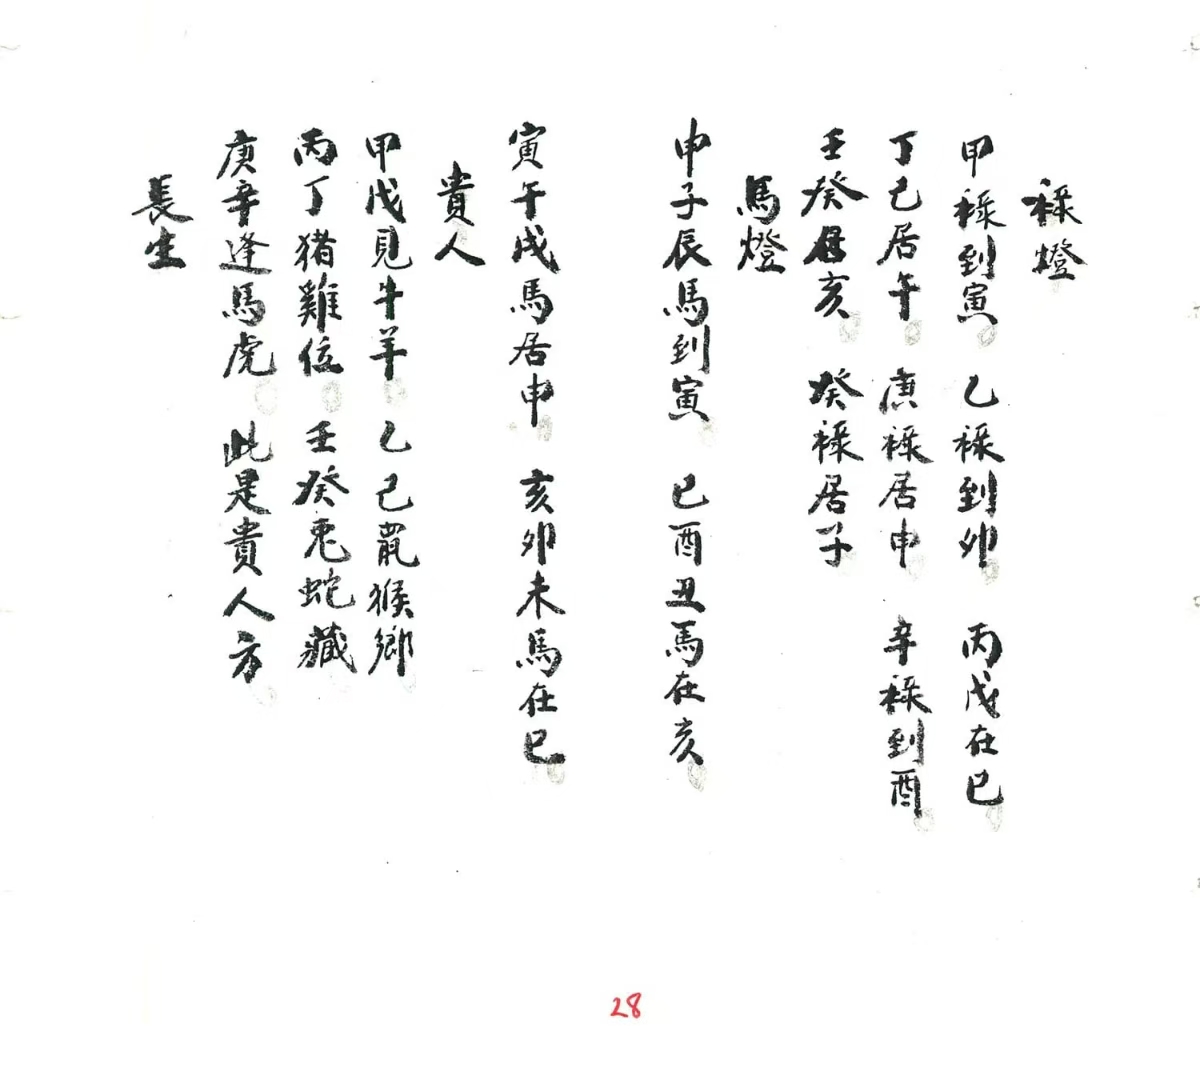 祿燈
甲祿到寅 乙祿到卯 丙戊在巳
丁己居午 庚祿居申 辛祿到酉
壬癸居亥 癸祿居子
馬燈
申子辰馬到寅 巳酉丑馬在亥
寅午戌馬居申 亥卯未馬在巳
貴人
甲戊見牛羊 乙己鼠猴鄉
丙丁猪雞位 壬癸兎蛇藏
庚辛逢馬虎 此是貴人方
長生
28